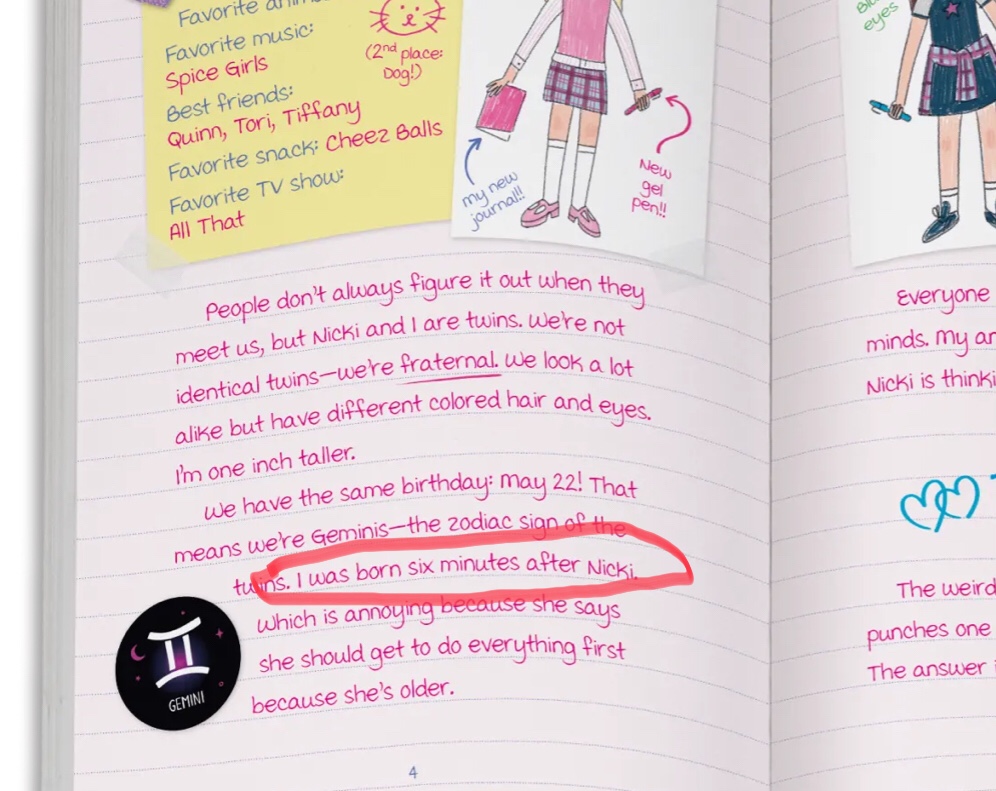 Favorite
Favorite music:
Spice Girls
(2nd place:
Dog!)
Best friends:
Quinn, Tori, Tiffany
Favorite snack: Cheez Balls
Favorite TV show:
All That
my new
journal!!
New
gel
pen!!
People don't always figure it out when they
meet us, but Nicki and I are twins. We're not
identical twins—we're fraternal. We look a lot
alike but have different colored hair and eyes.
I'm one inch taller.
We have the same birthday: May 22! That
means we're Geminis—the zodiac sign of the
twins. I was born six minutes after Nicki,
which is annoying because she says
she should get to do everything first
because she's older.
GEMINI
4
eyes
Everyone
minds. My
Nicki is
The
punches one
The answer